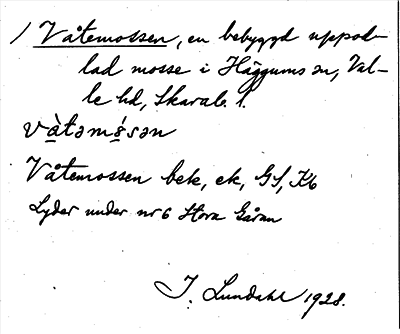 1 Våtemossen, en bebyggd uppod-
lad mosse i Häggums sn, Val-
le hd, Skarab. l.
và̀təmósən
Våtemossen bek, ek, GS, Kb
Lyder under nr 6 Stora Gåran
J. Lundahl 1928.